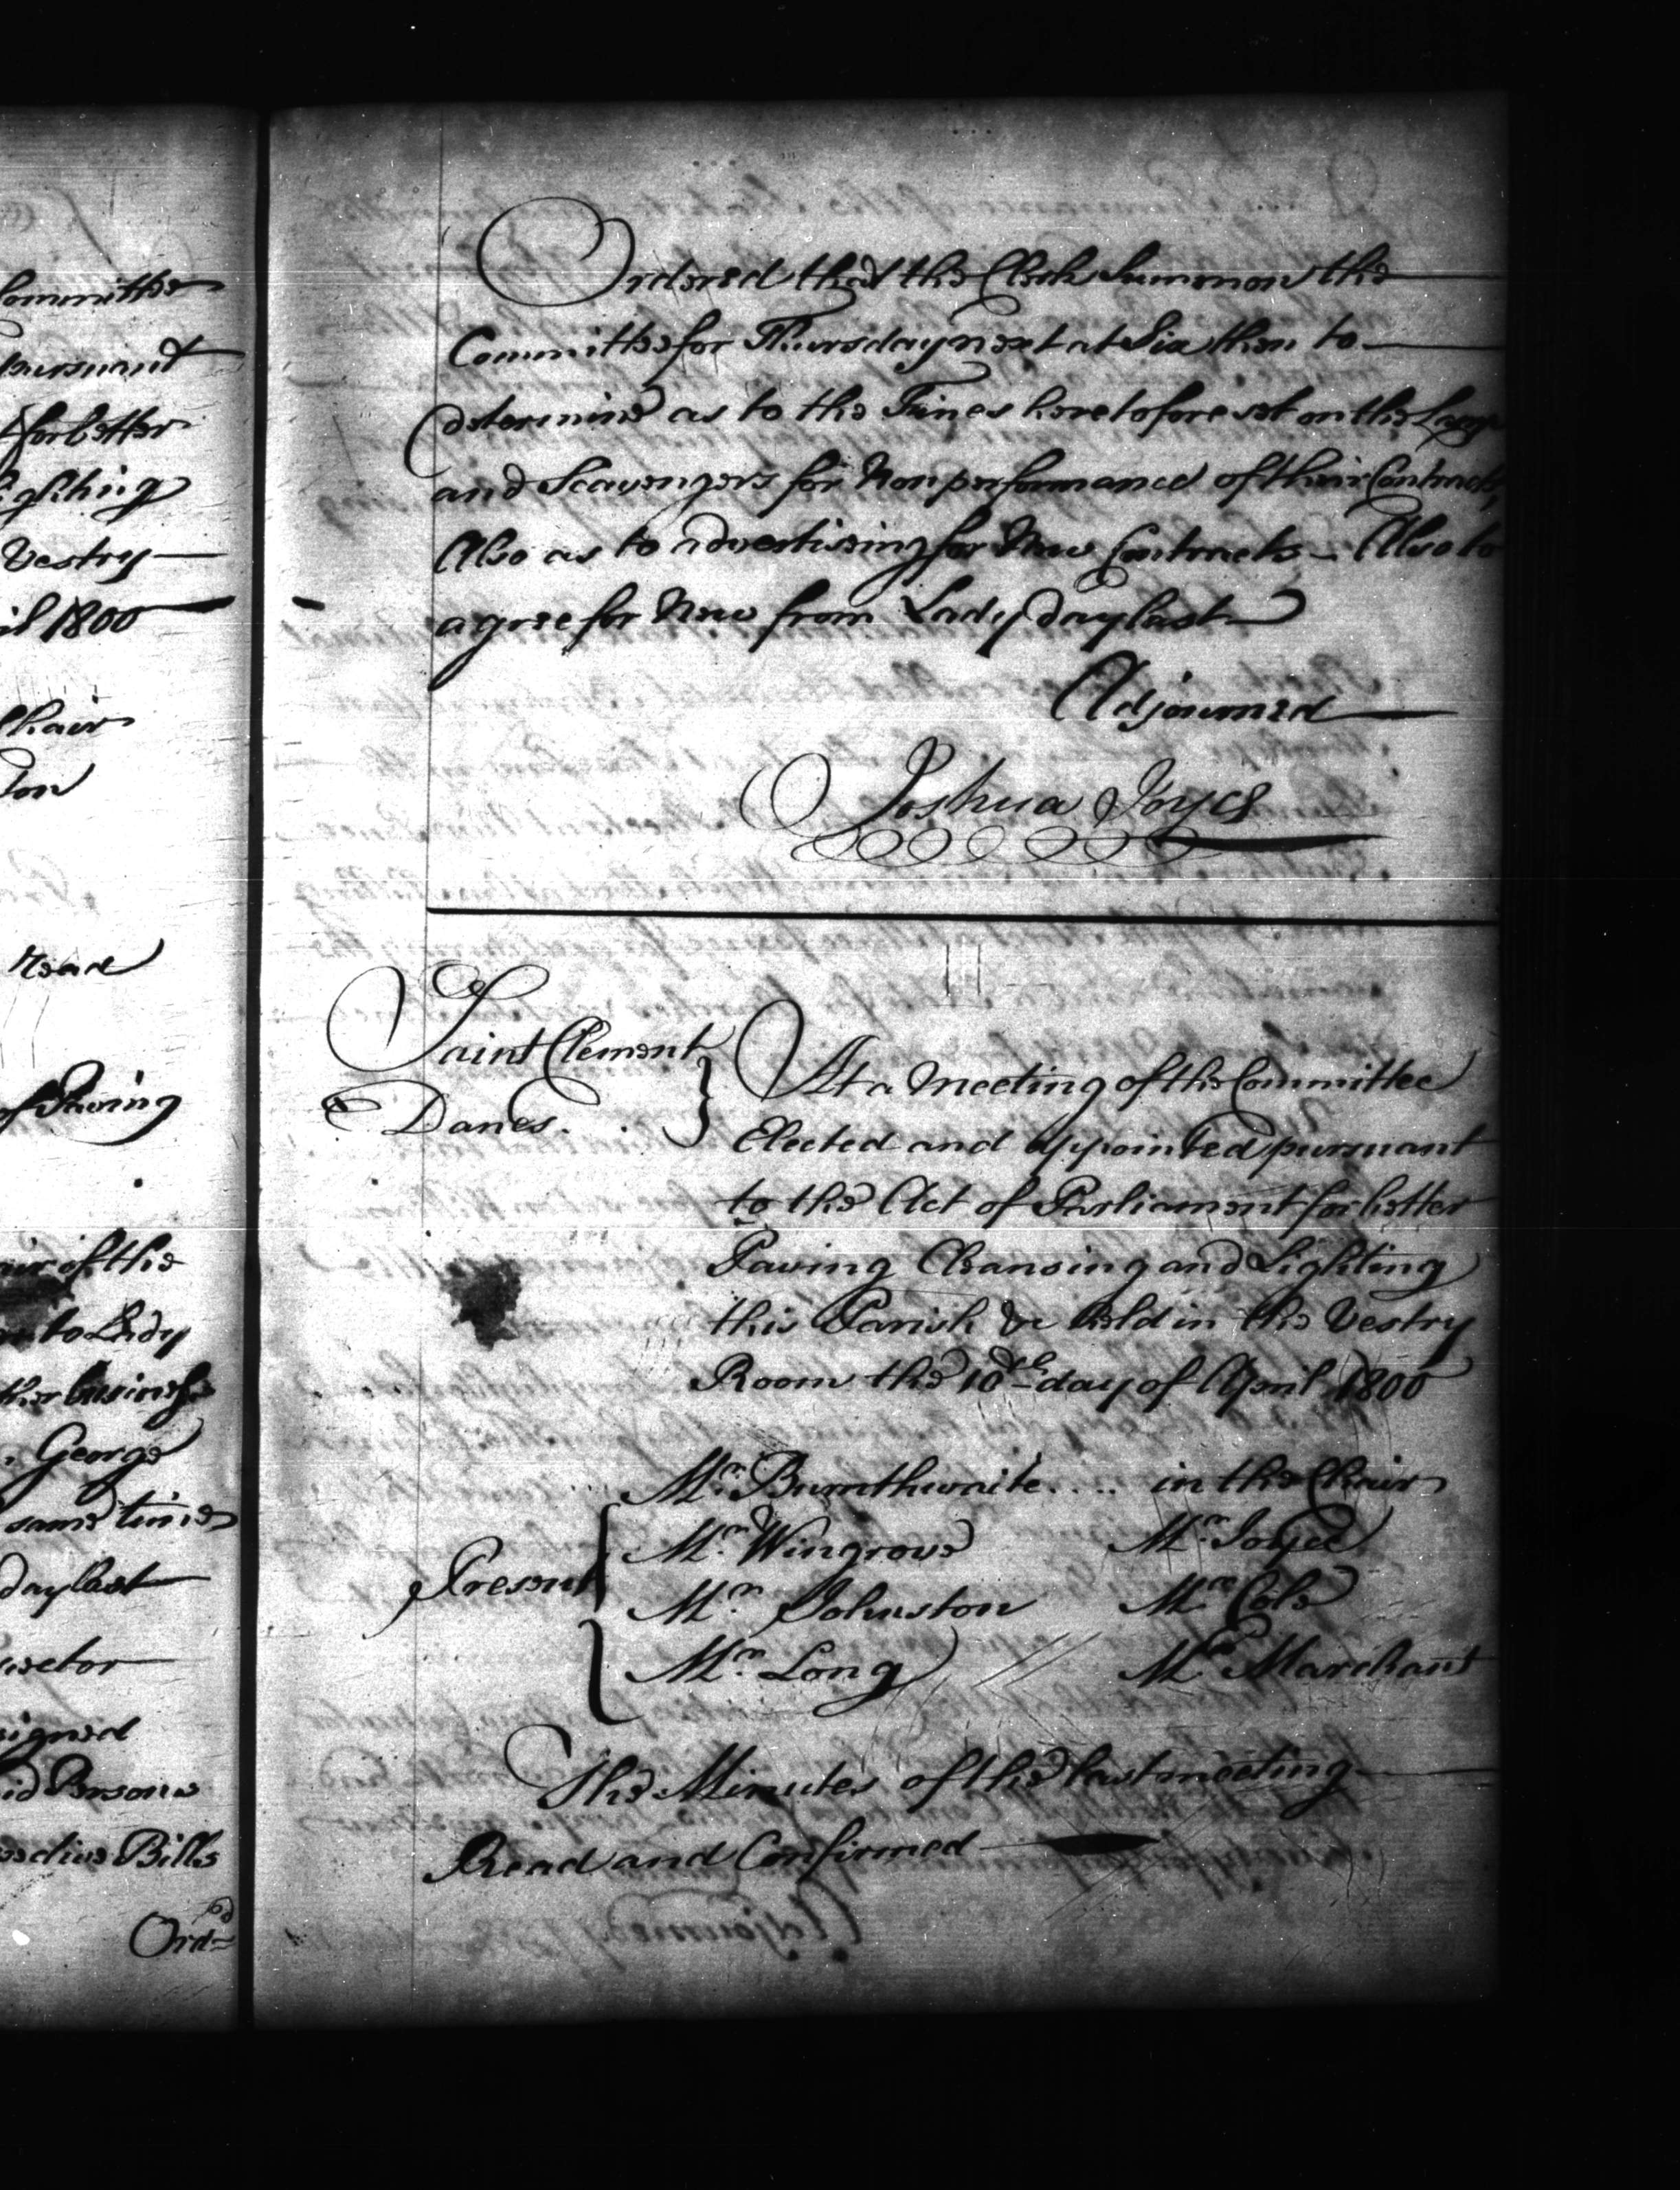 Committee
pursuant
for better
Lighting
Vestry
il 1800
Chair
ton
Read
of Paving
of the
to Lady
business
George
same time
day last
signed
Persons
Bills
Ord.d
Ordered that the Clerk Summon the
Committee for Thursday next at Six then to
determine as to the Fines heretofore set on the
and Scavengers for Nonperformance of their Contracts
Also as to advertising for New Contracts - Also to
agree for New from Lady day last
Adjourned
Joshua Joyce
Saint Clement
Danes.
At a Meeting of the Committee
Elected and appointed pursuant
to the Act of Parliament for better
Paving Cleansing and Lighting
this Parish &c held in the Vestry
Room the 10th day of April 1800
Mr. Burnthwaite.... in the Chair
Mr. Wingrove Mr. Joyce
Present
Mr. Johnston Mr. Cole
Mr. Long Mr. Marchant
The Minutes of the last meeting
Read and Confirmed